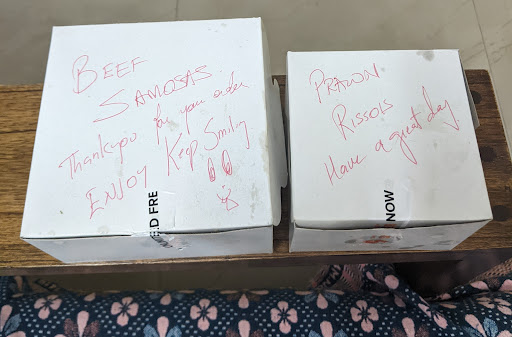 BEEF
SAMOSAS
Thankyou for your order
ENJOY Keep Smiling
ED FRE
PRAWN
RISSOIS
Have a great day
NOW